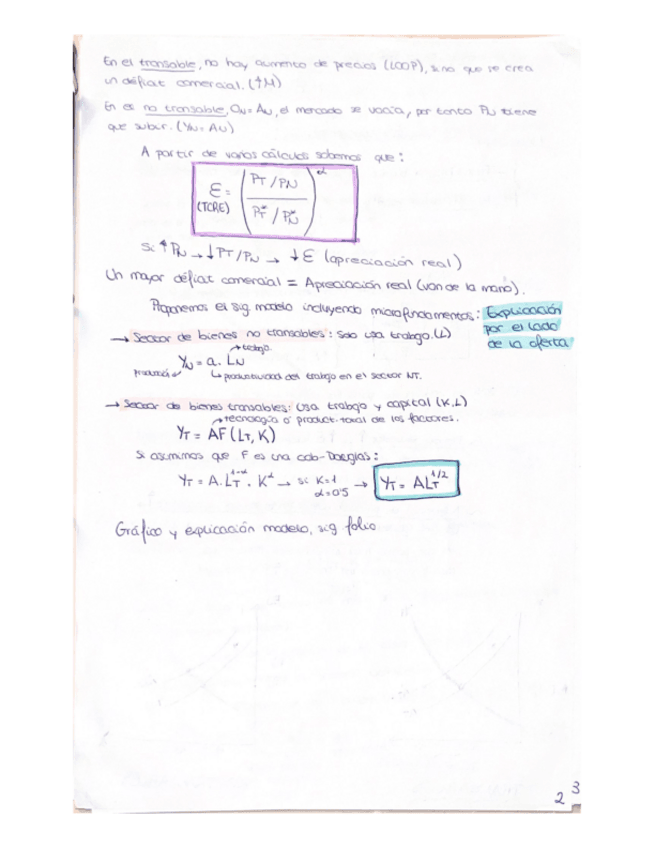 En el transable, no hay aumento de precios (LOOP), sino que se crea
un déficit comercial. (↑M)
En es no transable, QN = AN, el mercado se vacía, por tanto PN tiene
que subir. (YN = AN)
A partir de varios cálculos sabemos que:
ε = (TCRE) ( (PT / PN) / (PT* / PN*) )^α
Si ↑PN → ↓PT/PN → ↓ε (apreciación real)
Un mayor déficit comercial = Apreciación real (van de la mano).
Proponemos el sig. modelo incluyendo microfundamentos: Explicación
por el lado
de la oferta
→ Sector de bienes no transables: solo usa trabajo. (L)
→ trabajo.
YN = a. LN
producción ↲ ↳ productividad del trabajo en el sector NT.
→ Sector de bienes transables: usa trabajo y capital (K,L)
→ tecnología o product. total de los factores.
YT = AF (LT, K)
Si asumimos que F es una cob-Douglas:
YT = A. LT^1-α . K^α → si K=1 → YT = ALT^1/2
α=0'5
Gráfico y explicación modelo, sig folio
3
2